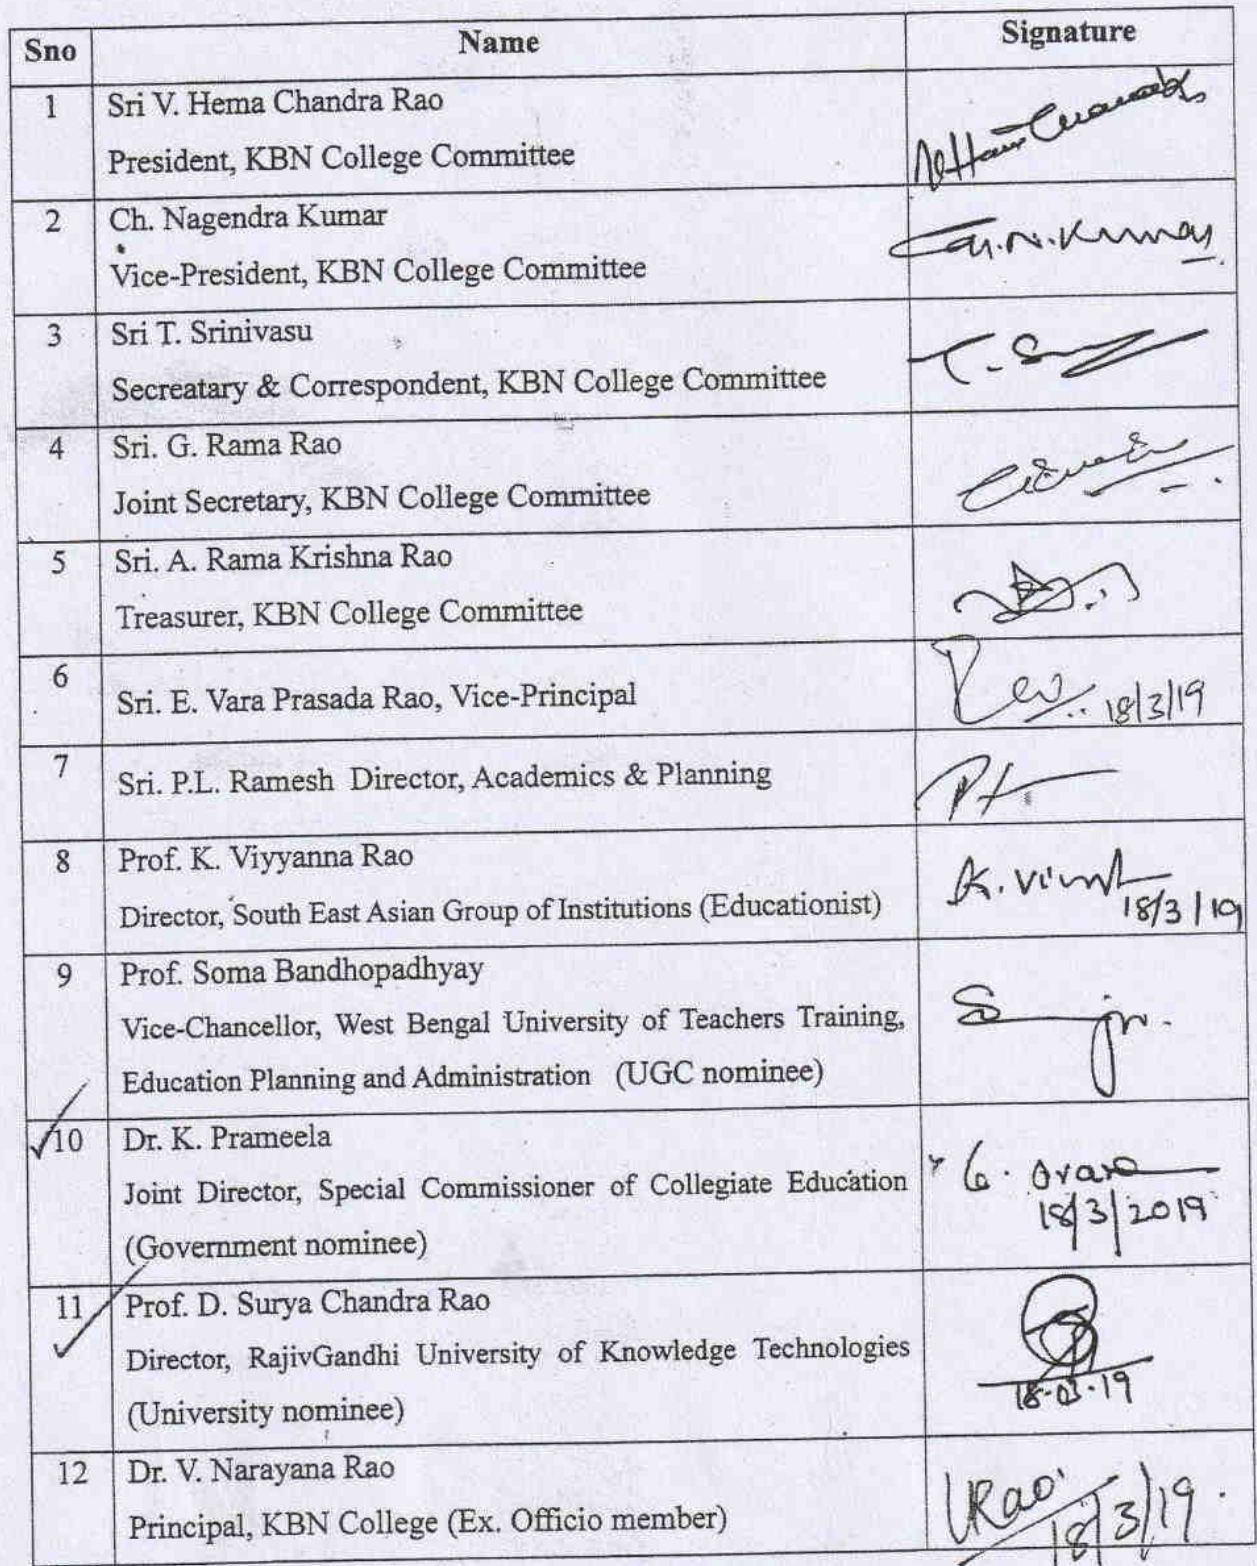 Sno Name Signature
1 Sri V. Hema Chandra Rao
President, KBN College Committee
2 Ch. Nagendra Kumar Ch.N.Kumar
Vice-President, KBN College Committee
3 Sri T. Srinivasu
Secreatary & Correspondent, KBN College Committee
4 Sri. G. Rama Rao
Joint Secretary, KBN College Committee
5 Sri. A. Rama Krishna Rao
Treasurer, KBN College Committee
6
Sri. E. Vara Prasada Rao, Vice-Principal 18/3/19
7 Sri. P.L. Ramesh Director, Academics & Planning
8 Prof. K. Viyyanna Rao
Director, South East Asian Group of Institutions (Educationist) 18/3/19
9 Prof. Soma Bandhopadhyay
Vice-Chancellor, West Bengal University of Teachers Training,
Education Planning and Administration (UGC nominee)
10 Dr. K. Prameela
Joint Director, Special Commissioner of Collegiate Education
18/3/2019
(Government nominee)
11 Prof. D. Surya Chandra Rao
Director, RajivGandhi University of Knowledge Technologies
18-03-19
(University nominee)
12 Dr. V. Narayana Rao
VRao
Principal, KBN College (Ex. Officio member) 18/3/19.